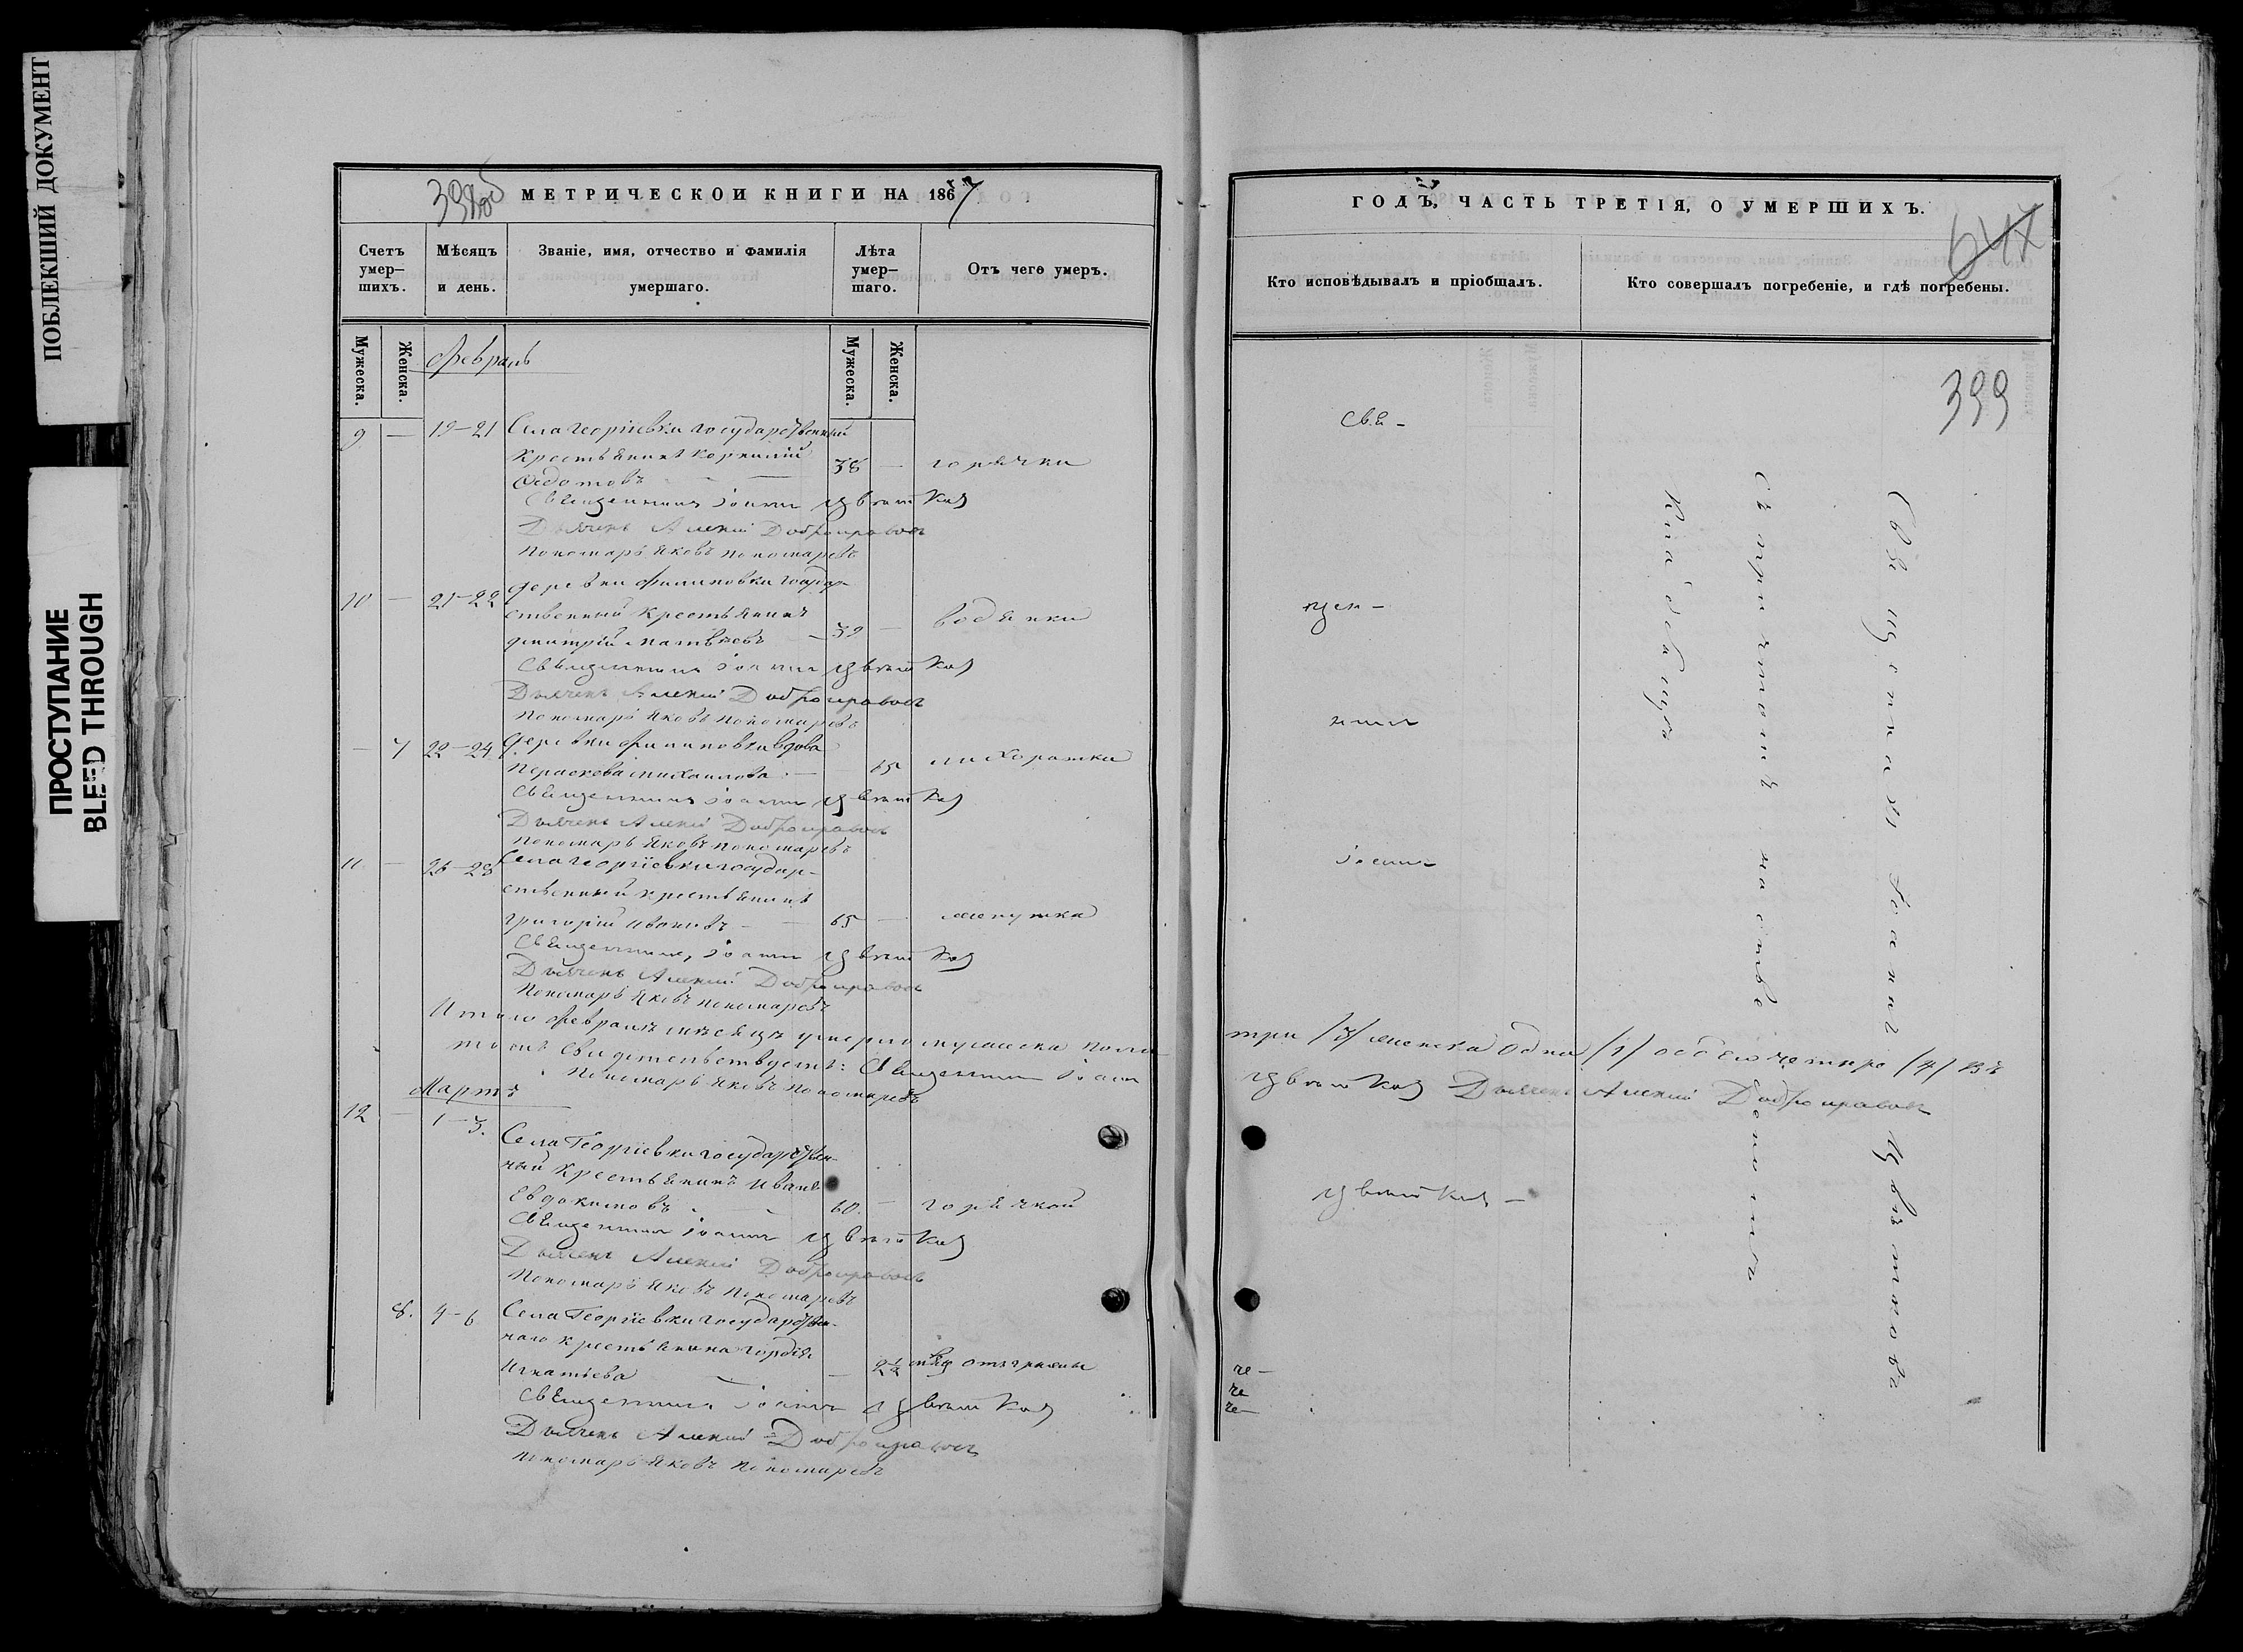 ПОБЛЕКШИЙ ДОКУМЕНТ
ПРОСТУПАНИЕ
BLEED THROUGH
398об
МЕТРИЧЕСКОЙ КНИГИ НА 1867
Счетъ умер–шихъ.
Мѣсяцъ и день.
Званіе, имя, отчество и фамилія умершаго.
Лѣта умер–шаго.
Отъ чего умеръ.
Мужеска.
Женска.
Мужеска.
Женска.
Февраль
9. — 19–21 Села Георгіевки государственный
крестьянинъ Корнилій 38 — горячки
Федотовъ
Священникъ Іоаннъ Цвѣтковъ
Дьячекъ Алексій Добронравовъ
Пономарь Яковъ Пономаревъ
10 — 21–22 деревни Филиповки государ-
ственный крестьянинъ
Дмитрій Матвѣевъ — 39 — водянки
Священникъ Іоаннъ Цвѣтковъ
Дьячекъ Алексій Добронравовъ
Пономарь Яковъ Пономаревъ
— 7 22–24 деревни Филиповки вдова
Параскева Михаилова — 65 лихорадки
Священникъ Іоаннъ Цвѣтковъ
Дьячекъ Алексій Добронравовъ
Пономарь Яковъ Пономаревъ
11 — 26–28 Села Георгіевки государ-
ственный крестьянинъ
Григорій Ивановъ — 65 —
Священникъ Іоаннъ Цвѣтковъ
Дьячекъ Алексій Добронравовъ
Пономарь Яковъ Пономаревъ
Итого Февраля мѣсяца умерло мужеска пола
томъ свидетельствуетъ: Священникъ Іоаннъ
Пономарь Яковъ Пономаревъ
Мартъ
12 — 1–3. Села Георгіевки государствен-
ный крестьянинъ Иванъ
Евдокимовъ 60. — горячкой
Священникъ Іоаннъ Цвѣтковъ
Дьячекъ Алексій Добронравовъ
Пономарь Яковъ Пономаревъ
8. 4–6 Села Георгіевки государствен-
наго крестьянина Гордѣя
Игнатьева — 2½
Священникъ Іоаннъ Цвѣтковъ
Дьячекъ Алексій Добронравовъ
Пономарь Яковъ Пономаревъ
ГОДЪ, ЧАСТЬ ТРЕТІЯ, О УМЕРШИХЪ.
647
Кто исповѣдывалъ и пріобщалъ.
Кто совершалъ погребеніе, и гдѣ погребены.
399
Свя-
щен-
никъ
Іоаннъ
Цвѣтковъ —
Священникъ Іоаннъ Цвѣтковъ
съ причтомъ на отве
кладбищѣ
три /3/ женска одна /1/ обоего четыре /4/ въ
Цвѣтковъ Дьячекъ Алексій Добронравовъ